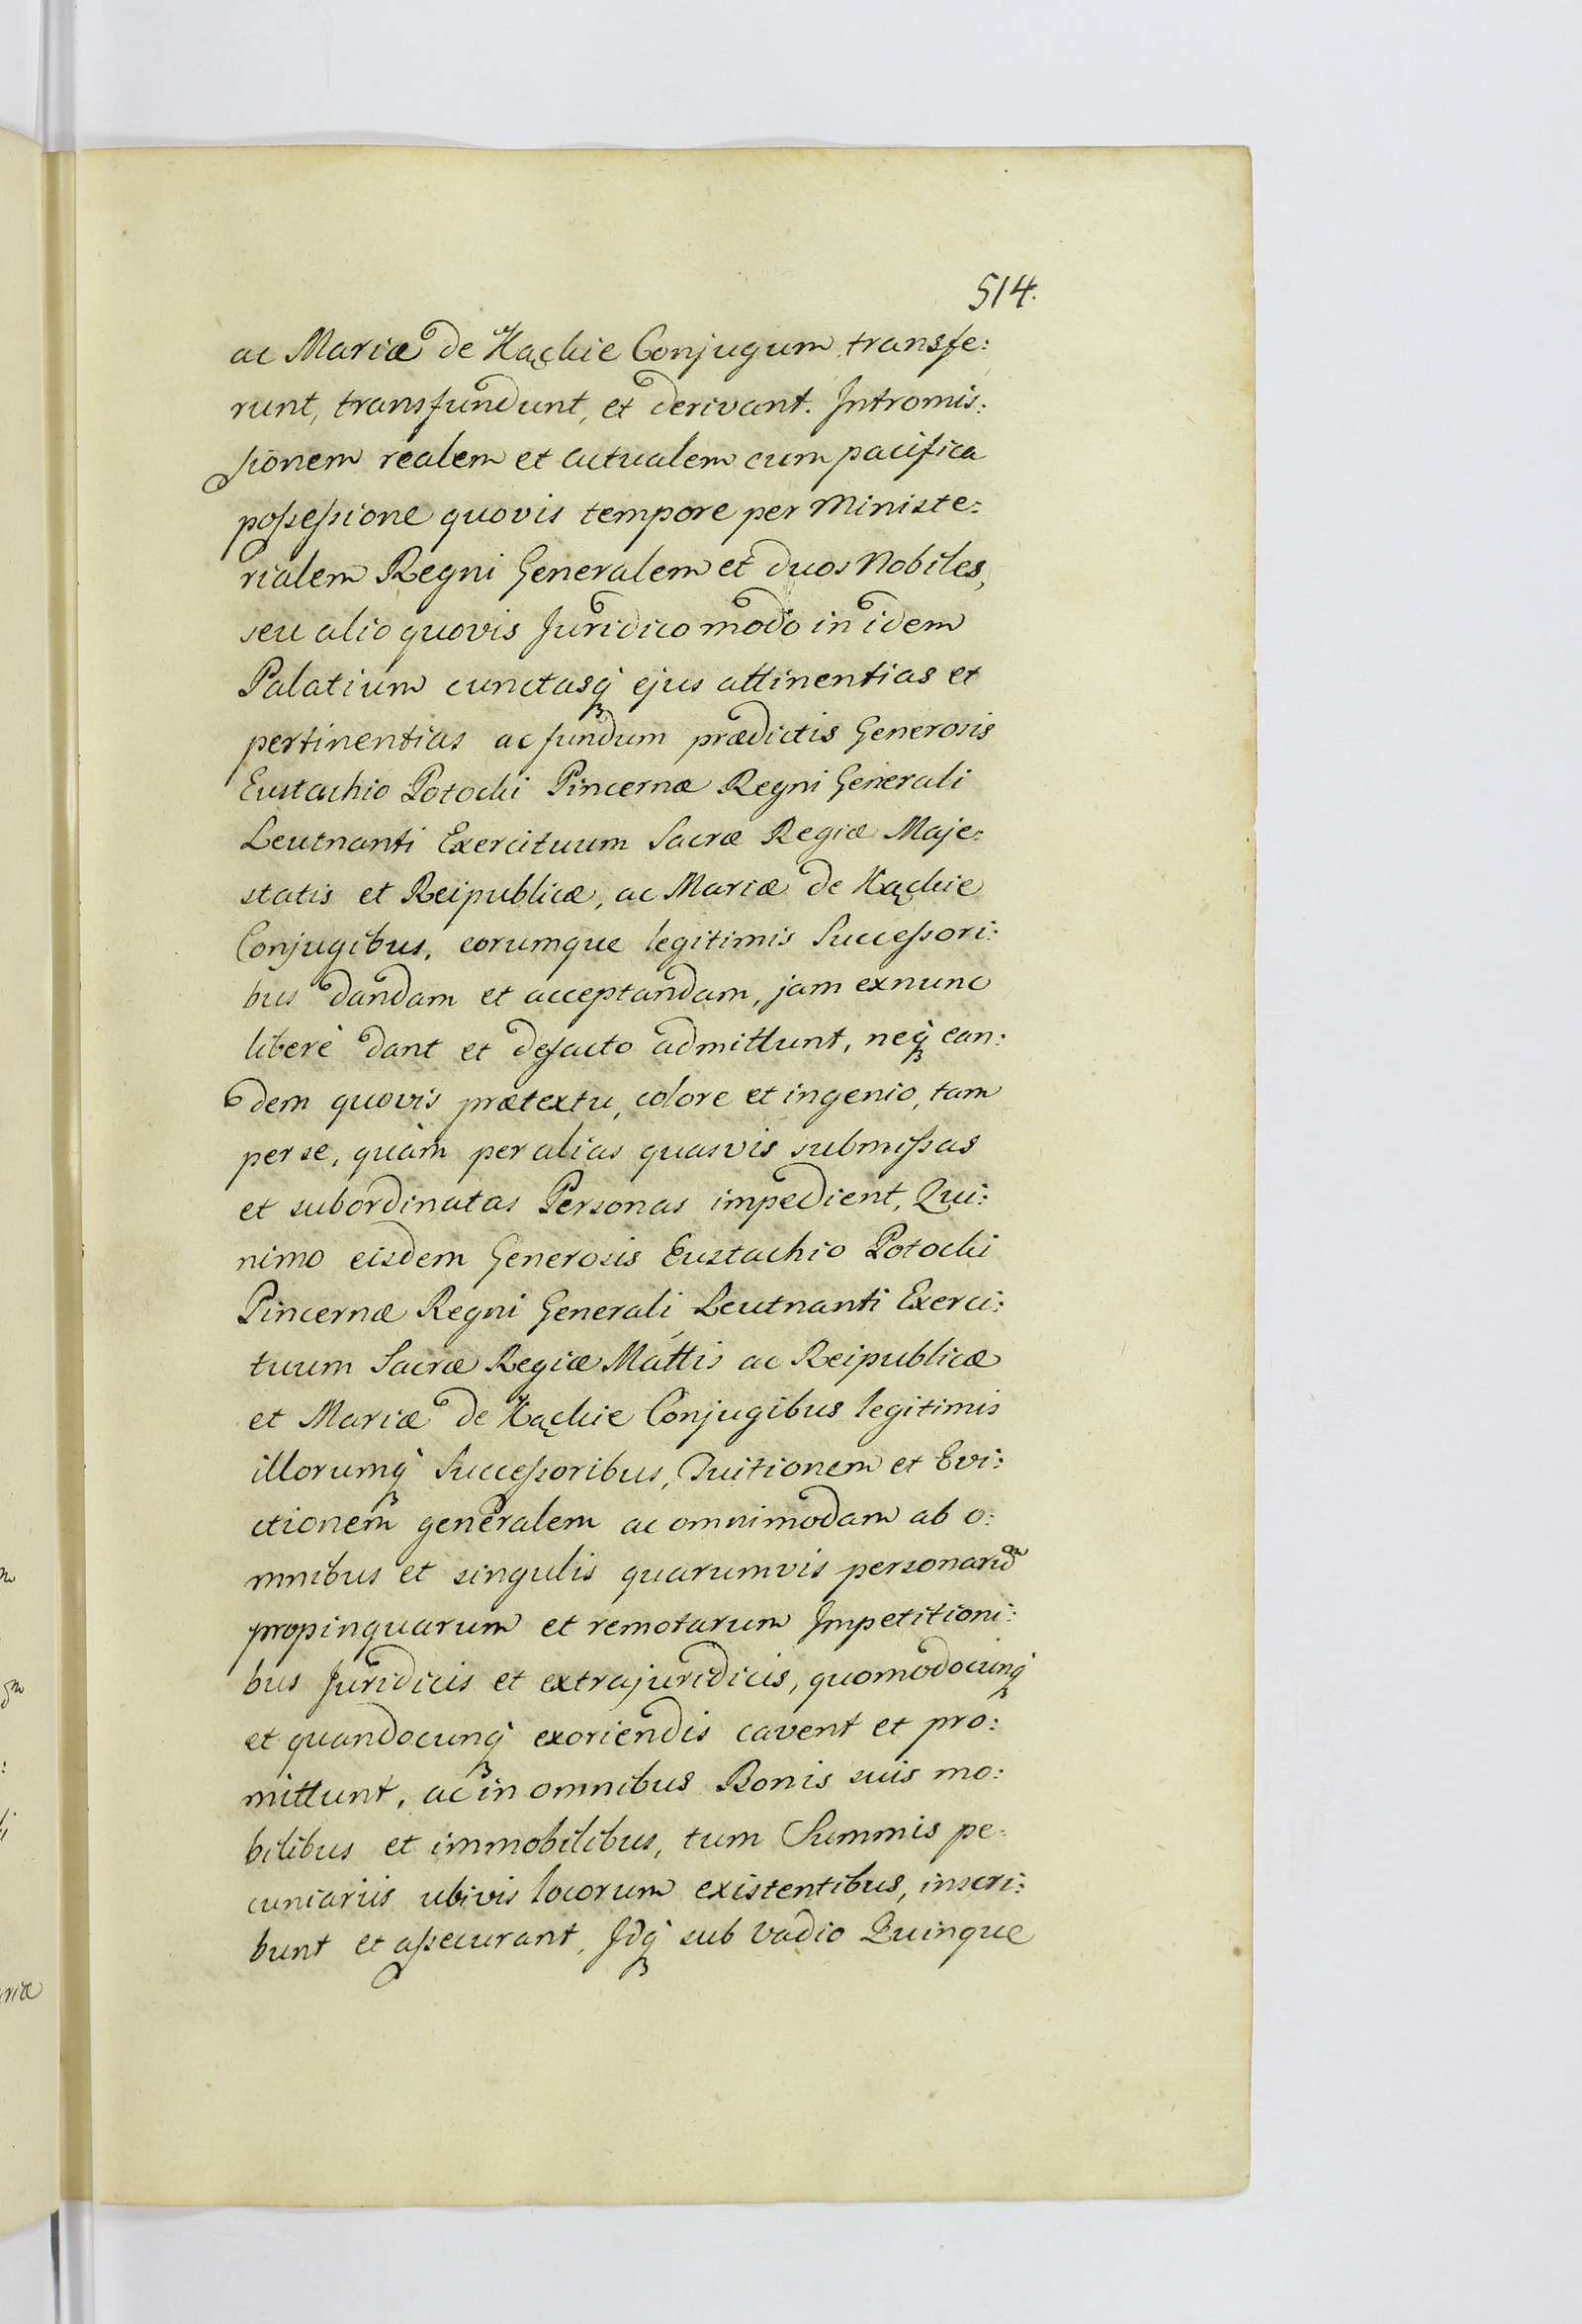 514.
ac Mariæ de Kąckie Conjugum transfe:
runt, transfundunt, et derivant. Intromis:
sionem realem et actualem cum pacifica
possessione quovis tempore per Ministe:
rialem Regni Generalem et duos Nobiles,
seu alio quovis Juridico modo in idem
Palatium cunctasq; ejus attinentias et
pertinentias ac fundum prædictis Generosis
Eustachio Potocki Pincernæ Regni Generali
Leutnanti Exercituum Sacræ Regiæ Maje:
statis et Reipublicæ, ac Mariæ de Kąckie
Conjugibus, eorumque legitimis Successori:
bus dandam et acceptandam, jam exnunc
liberè dant et defacto admittunt, neq; ean:
dem quovis prætextu, colore et ingenio, tam
per se, quàm per alias quasvis submissas
et subordinatas Personas impedient, Qui:
nimo eisdem Generosis Eustachio Potocki
Pincernæ Regni Generali Leutnanti Exerci:
tuum Sacræ Regiæ Mattis ac Reipublicæ
et Mariæ de Kąckie Conjugibus legitimis
illorumq; Successoribus, Tuitionem et Evi:
ctionem generalem ac omnimodam ab o:
mnibus et singulis quarumvis personarum
propinquarum et remotarum Impetitioni:
bus Juridicis et extrajuridicis, quomodocunq;
et quandocunq; exoriendis cavent et pro:
mittunt, ac in omnibus Bonis suis mo:
bilibus et immobilibus, tum Summis pe:
cuniariis ubivis locorum existentibus, inscri:
bunt et assecurant, Idq; sub vadio Quinque